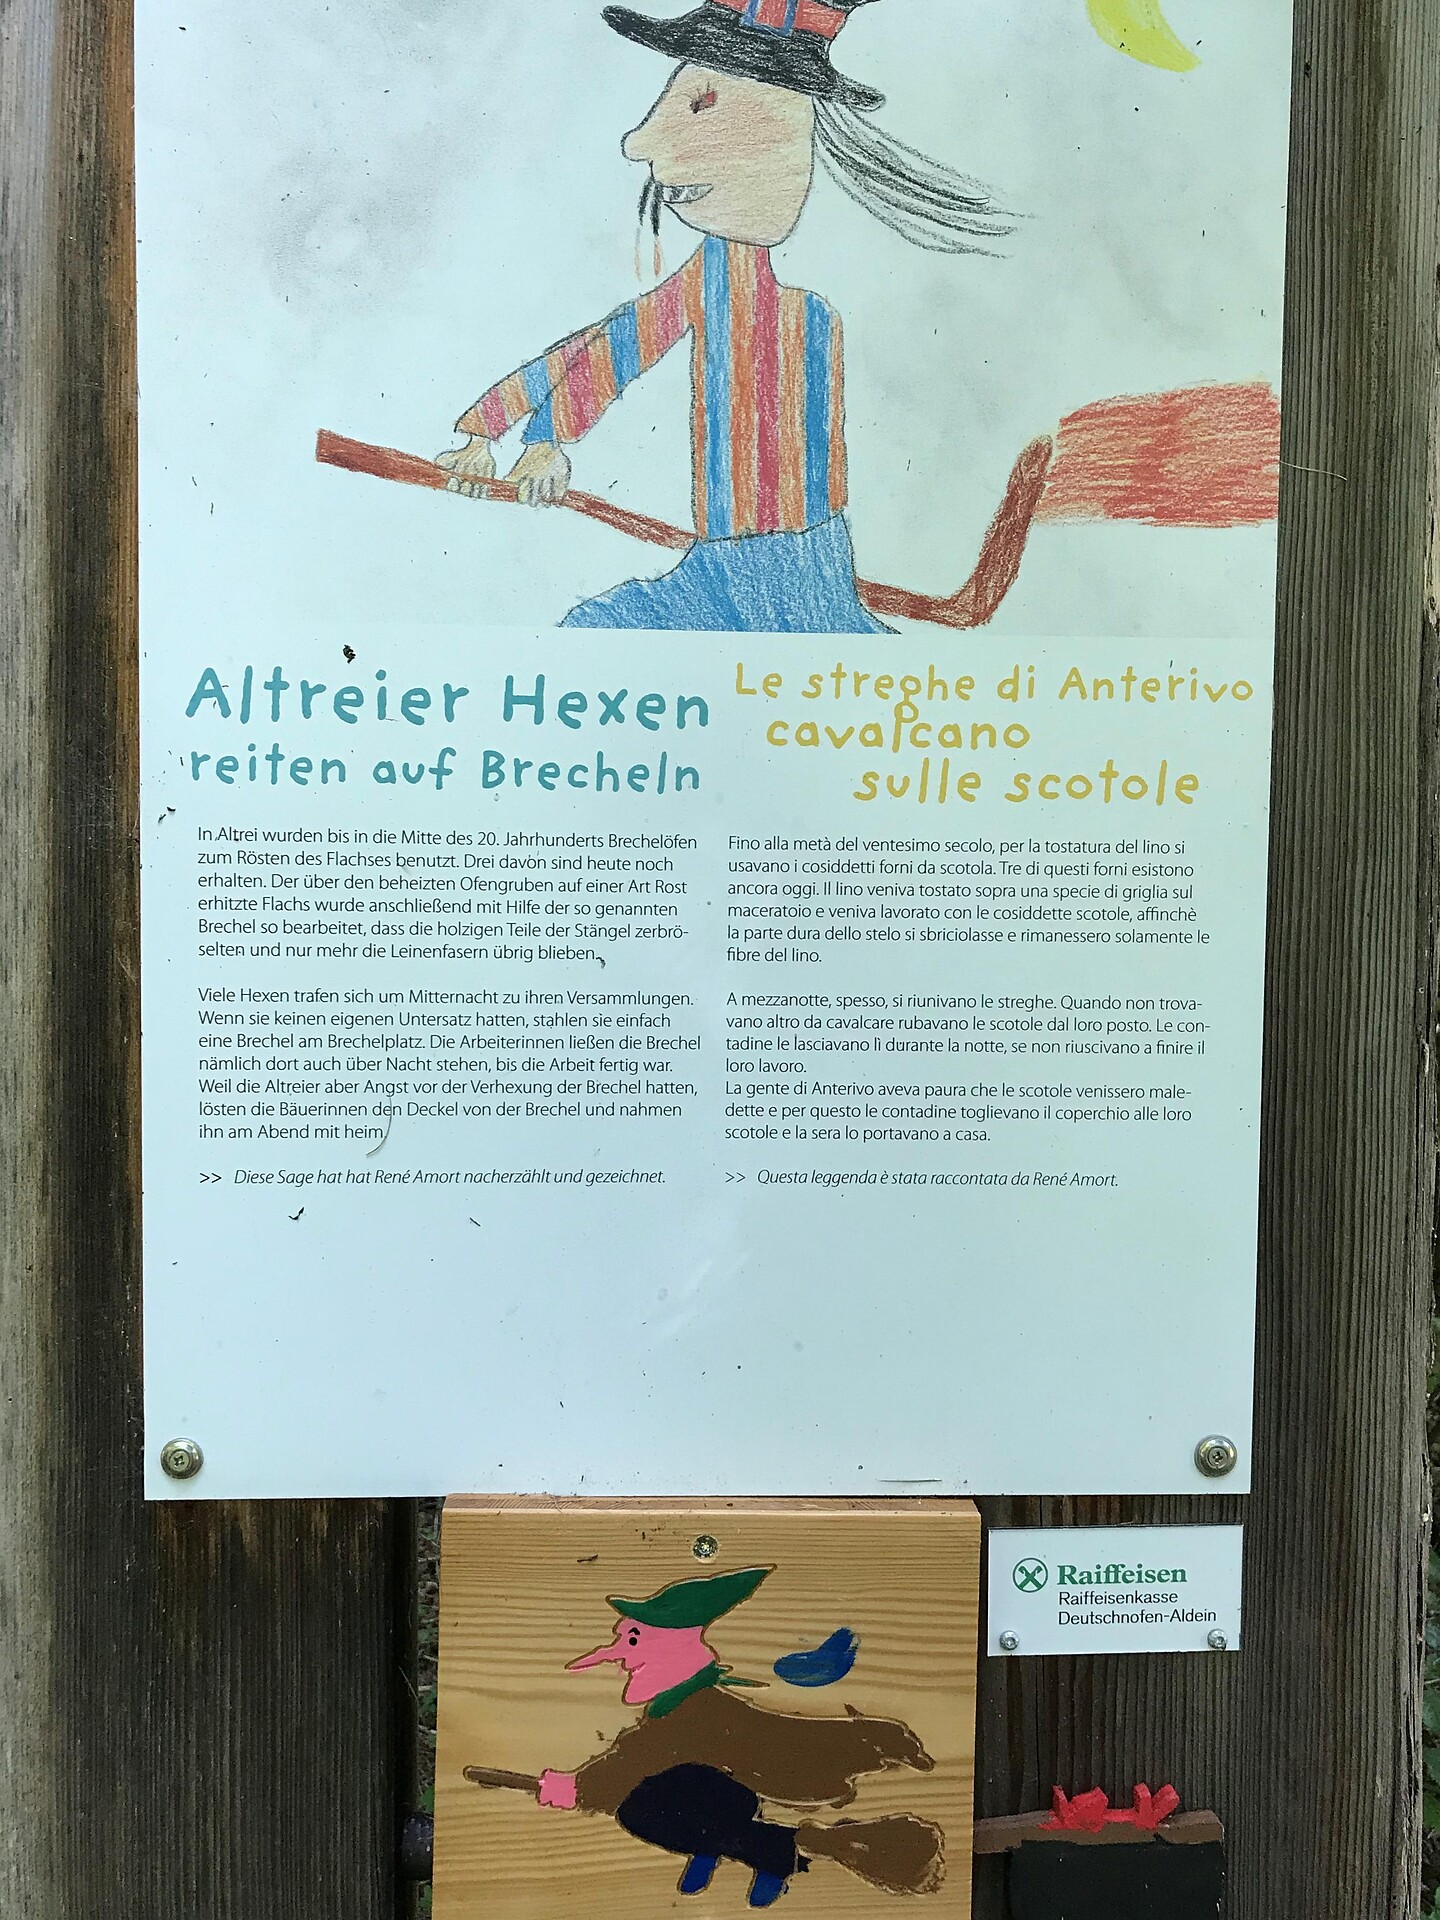 Altreier Hexen
reiten auf Brecheln
In Altrei wurden bis in die Mitte des 20. Jahrhunderts Brechelöfen
zum Rösten des Flachses benutzt. Drei davon sind heute noch
erhalten. Der über den beheizten Ofengruben auf einer Art Rost
erhitzte Flachs wurde anschließend mit Hilfe der so genannten
Brechel so bearbeitet, dass die holzigen Teile der Stängel zerbrö-
selten und nur mehr die Leinenfasern übrig blieben.
Viele Hexen trafen sich um Mitternacht zu ihren Versammlungen.
Wenn sie keinen eigenen Untersatz hatten, stahlen sie einfach
eine Brechel am Brechelplatz. Die Arbeiterinnen ließen die Brechel
nämlich dort auch über Nacht stehen, bis die Arbeit fertig war.
Weil die Altreier aber Angst vor der Verhexung der Brechel hatten,
lösten die Bäuerinnen den Deckel von der Brechel und nahmen
ihn am Abend mit heim.
>> Diese Sage hat hat René Amort nacherzählt und gezeichnet.
Le streghe di Anterivo
cavalcano
sulle scotole
Fino alla metà del ventesimo secolo, per la tostatura del lino si
usavano i cosiddetti forni da scotola. Tre di questi forni esistono
ancora oggi. Il lino veniva tostato sopra una specie di griglia sul
maceratoio e veniva lavorato con le cosiddette scotole, affinchè
la parte dura dello stelo si sbriciolasse e rimanessero solamente le
fibre del lino.
A mezzanotte, spesso, si riunivano le streghe. Quando non trova-
vano altro da cavalcare rubavano le scotole dal loro posto. Le con-
tadine le lasciavano lì durante la notte, se non riuscivano a finire il
loro lavoro.
La gente di Anterivo aveva paura che le scotole venissero male-
dette e per questo le contadine toglievano il coperchio alle loro
scotole e la sera lo portavano a casa.
>> Questa leggenda è stata raccontata da René Amort.
Raiffeisen
Raiffeisenkasse
Deutschnofen-Aldein